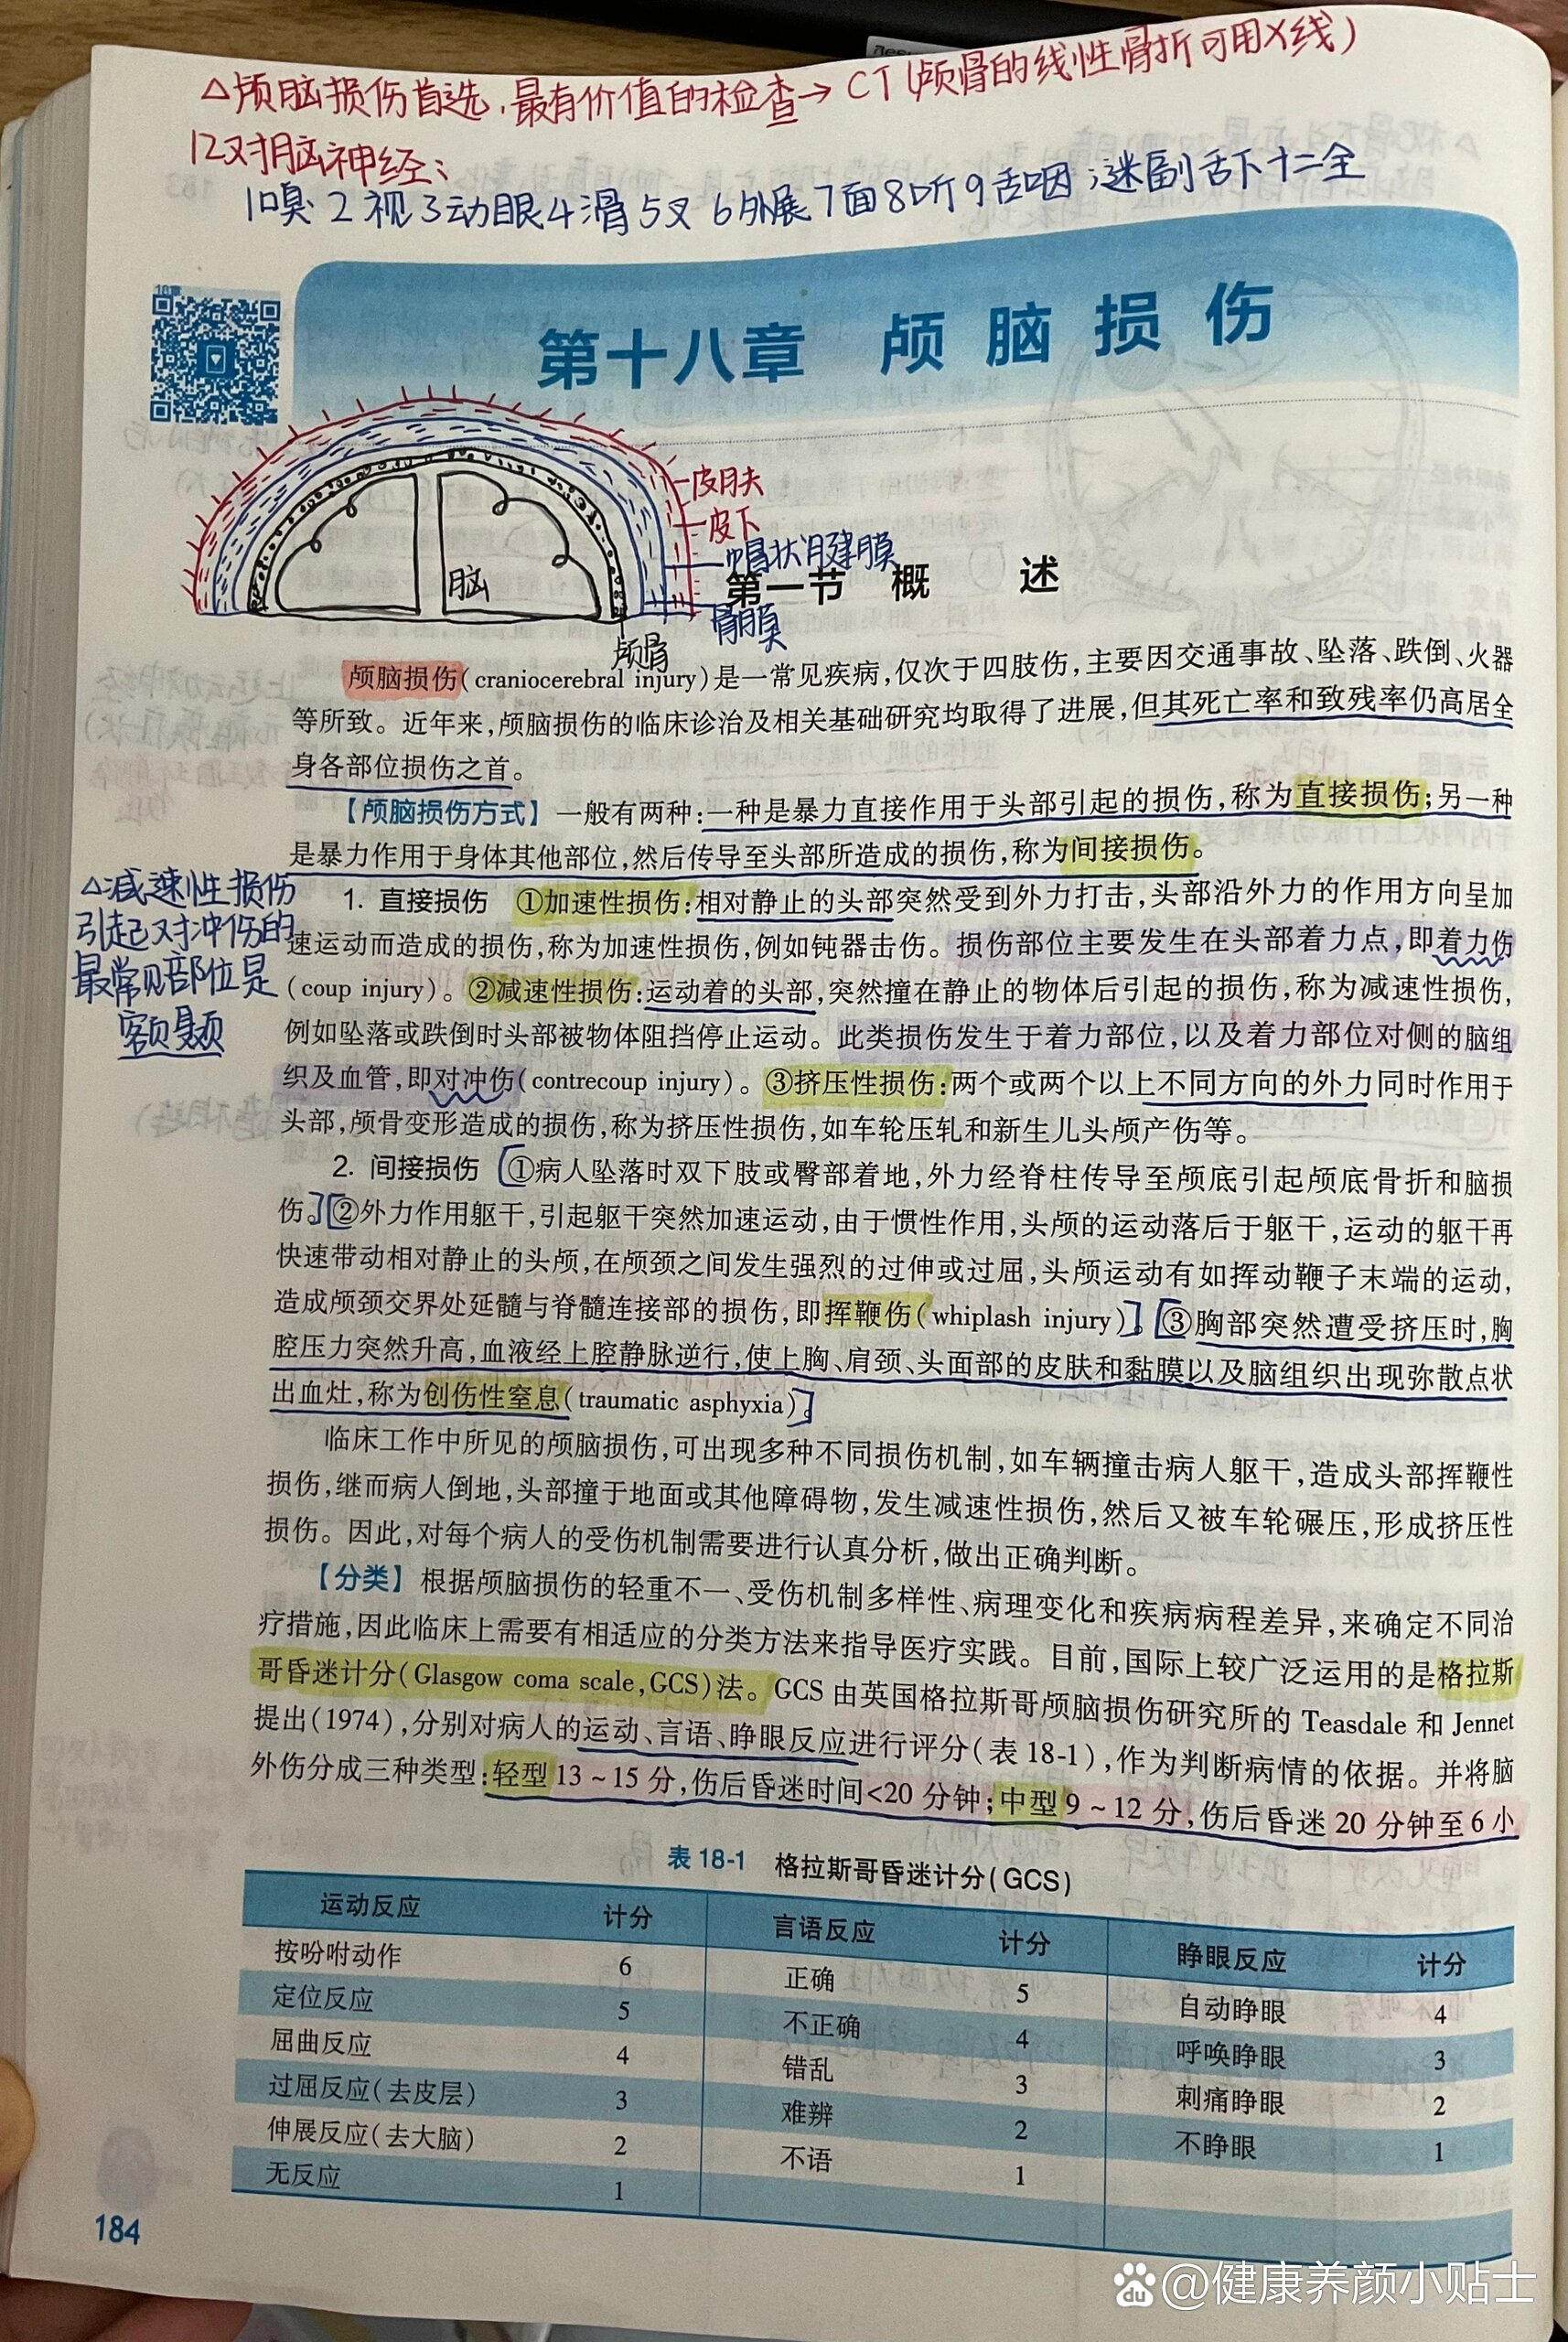 △颅脑损伤首选、最有价值的检查→CT(颅骨的线性骨折可用X线)
12对脑神经:
1嗅2视3动眼4滑5叉6外展7面8听9舌咽;迷副舌下十二全
第十八章 颅脑损伤
皮肤
皮下
帽状腱膜
第一节 概述
脑
骨膜
颅骨
颅脑损伤(craniocerebral injury)是一常见疾病,仅次于四肢伤,主要因交通事故、坠落、跌倒、火器
等所致。近年来,颅脑损伤的临床诊治及相关基础研究均取得了进展,但其死亡率和致残率仍高居全
身各部位损伤之首。
【颅脑损伤方式】 一般有两种:一种是暴力直接作用于头部引起的损伤,称为直接损伤;另一种
是暴力作用于身体其他部位,然后传导至头部所造成的损伤,称为间接损伤。
△减速性损伤
引起对冲伤的
最常见部位是
额颞
1. 直接损伤 ①加速性损伤:相对静止的头部突然受到外力打击,头部沿外力的作用方向呈加
速运动而造成的损伤,称为加速性损伤,例如钝器击伤。损伤部位主要发生在头部着力点,即着力伤
(coup injury)。②减速性损伤:运动着的头部,突然撞在静止的物体后引起的损伤,称为减速性损伤,
例如坠落或跌倒时头部被物体阻挡停止运动。此类损伤发生于着力部位,以及着力部位对侧的脑组
织及血管,即对冲伤(contrecoup injury)。③挤压性损伤:两个或两个以上不同方向的外力同时作用于
头部,颅骨变形造成的损伤,称为挤压性损伤,如车轮压轧和新生儿头颅产伤等。
2. 间接损伤 ①病人坠落时双下肢或臀部着地,外力经脊柱传导至颅底引起颅底骨折和脑损
伤。②外力作用躯干,引起躯干突然加速运动,由于惯性作用,头颅的运动落后于躯干,运动的躯干再
快速带动相对静止的头颅,在颅颈之间发生强烈的过伸或过屈,头颅运动有如挥动鞭子末端的运动,
造成颅颈交界处延髓与脊髓连接部的损伤,即挥鞭伤(whiplash injury)。③胸部突然遭受挤压时,胸
腔压力突然升高,血液经上腔静脉逆行,使上胸、肩颈、头面部的皮肤和黏膜以及脑组织出现弥散点状
出血灶,称为创伤性窒息(traumatic asphyxia)。
临床工作中所见的颅脑损伤,可出现多种不同损伤机制,如车辆撞击病人躯干,造成头部挥鞭性
损伤,继而病人倒地,头部撞于地面或其他障碍物,发生减速性损伤,然后又被车轮碾压,形成挤压性
损伤。因此,对每个病人的受伤机制需要进行认真分析,做出正确判断。
【分类】 根据颅脑损伤的轻重不一、受伤机制多样性、病理变化和疾病病程差异,来确定不同治
疗措施,因此临床上需要有相适应的分类方法来指导医疗实践。目前,国际上较广泛运用的是格拉斯
哥昏迷计分(Glasgow coma scale,GCS)法。GCS 由英国格拉斯哥颅脑损伤研究所的 Teasdale 和 Jennet
提出(1974),分别对病人的运动、言语、睁眼反应进行评分(表 18-1),作为判断病情的依据。并将脑
外伤分成三种类型:轻型 13~15 分,伤后昏迷时间<20 分钟;中型 9~12 分,伤后昏迷 20 分钟至 6 小
表 18-1 格拉斯哥昏迷计分(GCS)
运动反应 计分 言语反应 计分 睁眼反应 计分
按吩咐动作 6 正确 5 自动睁眼 4
定位反应 5 不正确 4 呼唤睁眼 3
屈曲反应 4 错乱 3 刺痛睁眼 2
过屈反应(去皮层) 3 难辨 2 不睁眼 1
伸展反应(去大脑) 2 不语 1
无反应 1
184
@健康养颜小贴士